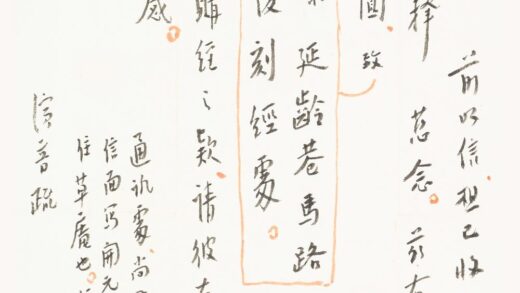 前以信。想已收
慈念。茲
圓致
延齡巷馬路
刻經處。
購經之款。請彼
感。
通訊處。尚
信面寫開元
住草庵也。
演音疏